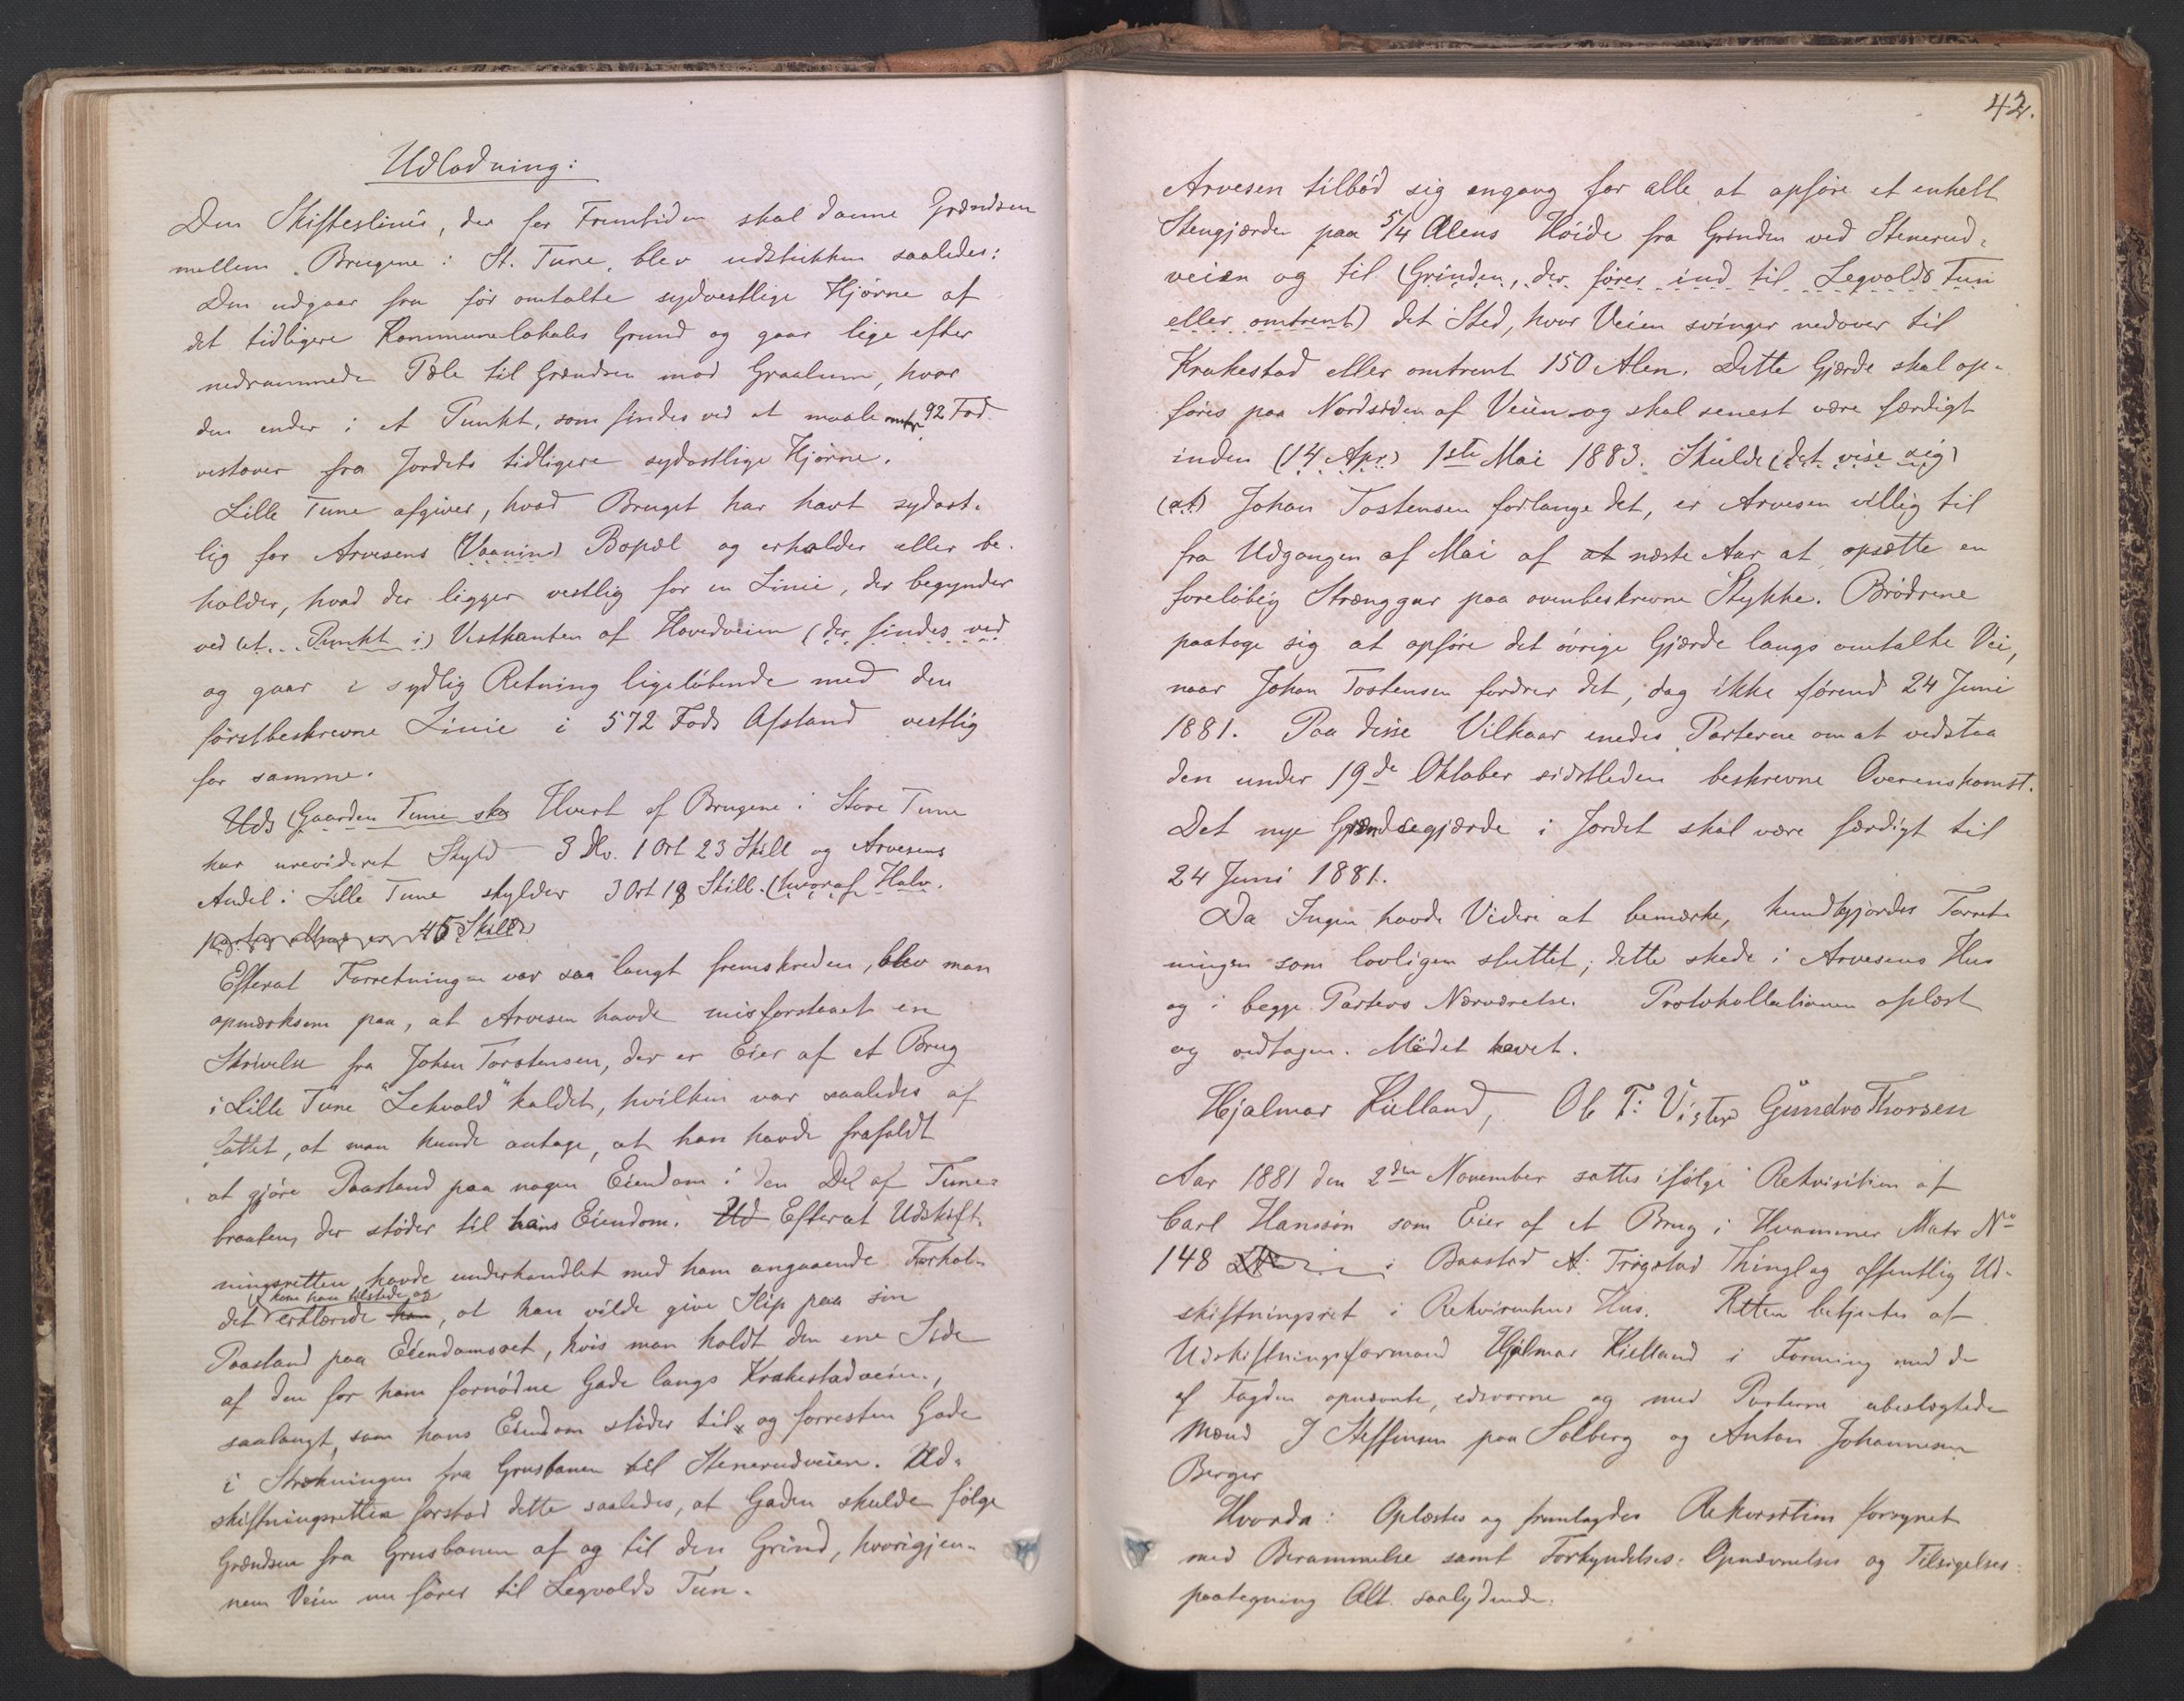 Udlodning:
Den Skifteslinie, der for Fremtiden skal danne Grændsen
mellem Brugene i St. Tune, blev udstukken saaledes:
Den udgaar fra før omtalte sydvestlige Hjörne af
det tidligere Kommunelokales Grund og gaar lige efter
nedrammede Pæle til Grændsen mod Graalum, hvor
den ender i et Punkt, som findes ved at maale omtr. 92 Fod
vestover fra Jordets tidligere sydostlige Hjörne.
Lille Tune afgiver, hvad Bruget har havt sydost-
lig for Arvesens (Vaanin) Bopæl og erholder eller be-
holder, hvad der ligger vestlig for en Linie, der begynder
ved (et Punkt i) Vestkanten af Hovedveien (der findes ved
og gaar i sydlig Retning ligelöbende med den
förstbeskrevne Linie i 572 Fods Afstand vestlig
for samme.
Uds (Gaarden Tune ska Hvert af Brugene i Store Tune
har urevideret Skyld 3 Dlr. 1 Ort 23 Skill og Arvesens
Andel i Lille Tune skylder 3 Ort 18 Skill. (hvoraf Halv-
45 Skill)
Efterat Forretningen var saa langt fremskreden, blev man
opmærksom paa, at Arvesen havde misforstaaet en
Skrivelse fra Johan Torstensen, der er Eier af et Brug
i Lille Tune "Lekvold" kaldet, hvilken var saaledes af
fattet, at man kunde antage, at han havde frafaldt
at gjöre Paastand paa nogen Eiendom i den Del af Tune-
braaten, der stöder til hans Eiendom. Ud Efterat Udskift-
ningsretten havde underhandlet med ham angaaende Forhol-
kom han tilstede og
det erklærede han, at han vilde give Slip paa sin
Paastand paa Eiendomsret, hvis man holdt den ene Side
af den for ham fornödne Gade langs Krakestadveien,
saalangt, som hans Eiendom stöder til, og forresten Gade
i Strækningen fra Grusbanen til Stenerudveien. Ud-
skiftningsretten forstod dette saaledes, at Gaden skulde fölge
Grændsen fra Grusbanen af og til den Grind, hvorigjen-
nem Veien nu förer til Legvolds Tun.
42.
Arvesen tilböd sig engang for alle at opföre et enkelt
Stengjærde paa 5/4 Alens Höide fra Grinden ved Stenerud-
veien og til (Grinden, der förer ind til Legvolds Tun
eller omtrent) det Sted, hvor Veien svinger nedover til
Krakestad eller omtrent 150 Alen. Dette Gjærde skal op-
föres paa Nordsiden af Veien og skal senest være færdigt
inden (14 Apr.) 1ste Mai 1883. Skulde (det vise sig)
(at) Johan Tostensen forlange det, er Arvesen villig til
fra Udgangen af Mai af at næste Aar at opsætte en
forelöbig Strænggar paa ovenbeskrevne Stykke. Brödrene
paatoge sig at opföre det övrige Gjærde langs omtalte Vei,
naar Johan Tostensen fordrer det, dog ikke förend 24 Juni
1881. Paa disse Vilkaar enedes Parterne om at vedstaa
den under 19de Oktober sidstleden beskrevne Overenskomst.
Det nye Grændsegjærde i Jordet skal være færdigt til
24 Juni 1881.
Da Ingen havde Videre at bemærke, kundgjordes Forret-
ningen som lovligen sluttet; dette skede i Arvesens Hus
og i begge Parters Nærværelse. Protokollationen oplæst
og vedtagen. Mödet hævet.
Hjalmar Kielland, Ole T: Vister Gundro Thorsen
Aar 1881 den 2den November sattes ifölge Rekvisition af
Carl Hansson som Eier af et Brug i Hvammer Matr No
148 i Baastad A: Trögstad Thinglag offentlig Ud-
skiftningsret i Rekvirentens Hus. Retten betjentes af
Udskiftningsformand Hjalmar Kielland i Forening med de
af Fogden opnævnte, edsvorne og med Parterne ubeslægtede
Mænd J Steffensen paa Solberg og Anton Johannesen
Berger
Hvorda: Oplæstes og fremlagdes Rekvisition forsynet
med Berammelse samt Forkyndelses- Opnævnelses og Tilsigelses-
paategning Alt. saalydende: